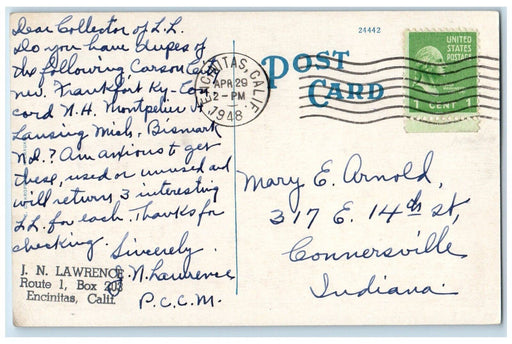 Dear Collector of L.L.
Do you have dupes of
the following Carson City
Nev. Frankfort Ky-Con
cord N.H. Montpelier Vt
Lansing Mich, Bismark
N.d.? Am anxious to get
these, used or unused and
will return 3 interesting
LL. for each. Thanks for
checking.
Sincerely.
J. N. Lawrence
P.C.C.M.
J. N. LAWRENCE
Route 1, Box 203
Encinitas, Calif.
24442
POST
CARD
ENCINITAS, CALIF.
APR 29
2-PM
1948
UNITED
STATES
POSTAGE
1 CENT 1
Mary E. Arnold,
317 E. 14th st,
Connersville
Indiana.